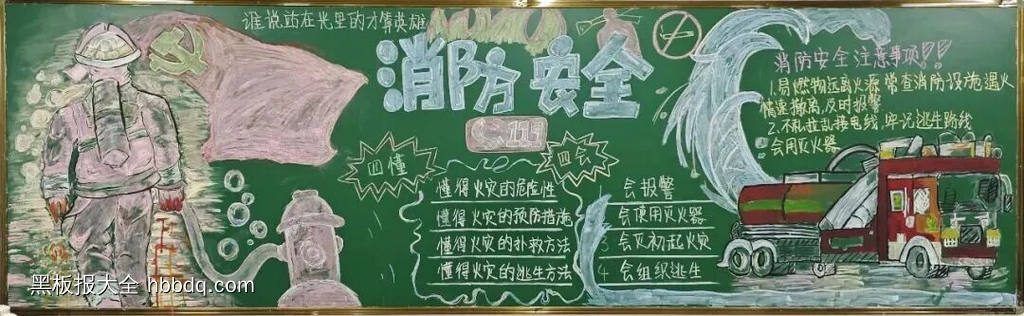 谁说站在光里的才算英雄
消防安全
四懂
懂得火灾的危险性
懂得火灾的预防措施
懂得火灾的扑救方法
懂得火灾的逃生方法
四会
会报警
会使用灭火器
3 会灭初起火灾
4 会组织逃生
消防安全注意事项!!!
1.易燃物远离火源,常查消防设施,遇火
情速撤离,及时报警
2.不乱拉乱接电线,牢记逃生路线
会用灭火器
黑板报大全 hbbdq.com